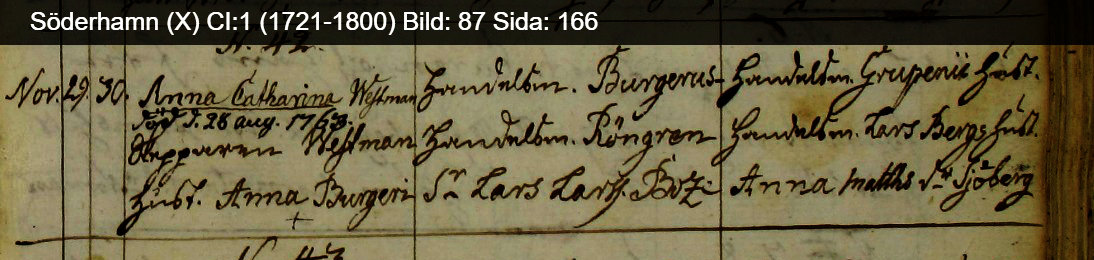 Söderhamn (X) CI:1 (1721-1800) Bild: 87 Sida: 166
N. 42.
Nov. 29. 30. Anna Catharina Westman Handelsm. Burgerus Handelsm. Grupenii Hust.
Död d. 28 aug. 1763.
Skepparen Westman Handelsm. Röngren Handelsm. Lars Bergs Hust.
Hust. Anna Burgeri Sr Lars Larss. Anna Matths Sjöberg
N. 43